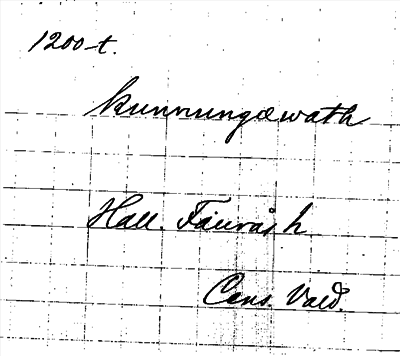 1200-t.
Kunnungawath
Hall. Fauråsh
Cens. Vald.